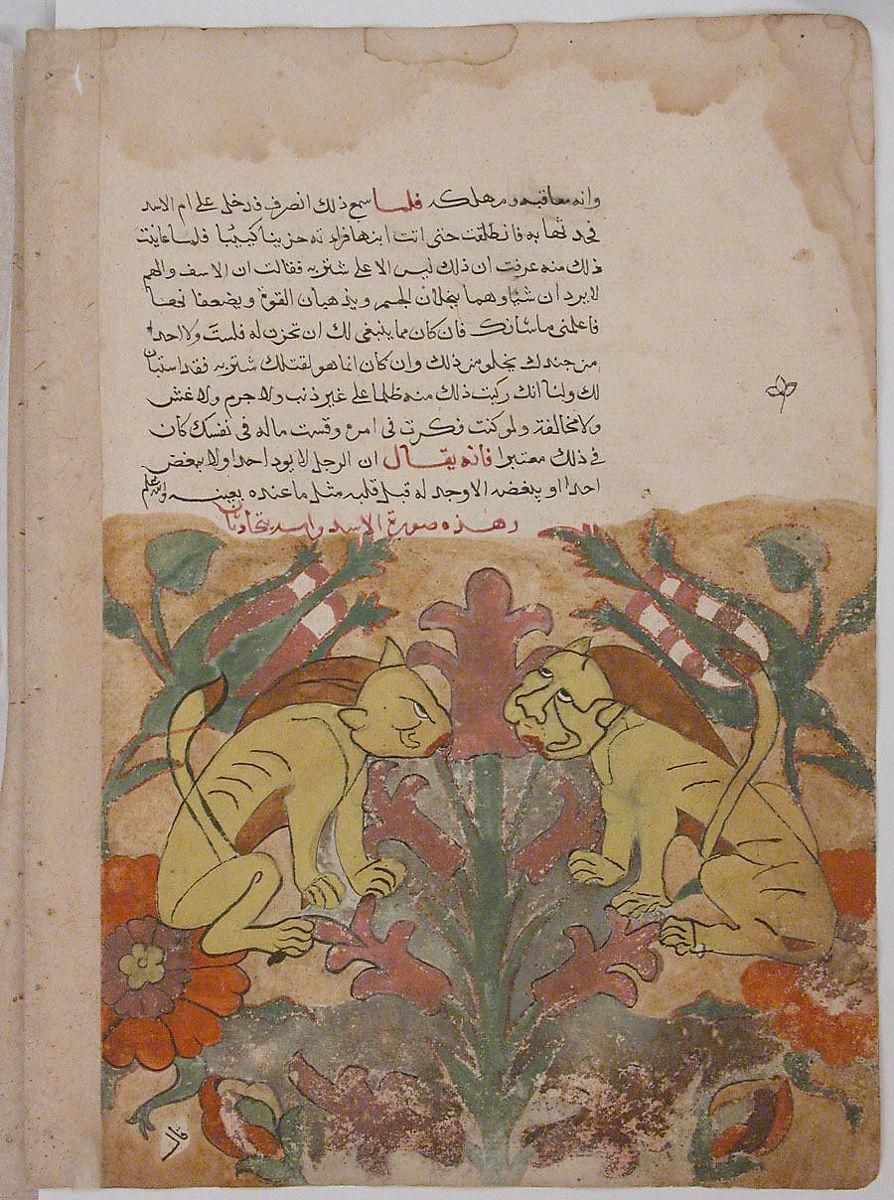 وانه معاقبه ومهلكه فلما سمع ذلك انصرف فدخل على ام الاسد
فحدثها به فانطلقت حتى اتت ابنها فراته حزينا كييبا فلما عاينت
ذلك منه عرفت ان ذلك ليس الا على شتربه فقالت ان الاسف والهم
لا يردان شيا وهما ينحلان الجسم ويذهبان القوة ويضعفانها
فاعلمنى ماشانك فان كان مما ينبغى لك ان تحزن له فلست ولا احدا
من جندك يخلو من ذلك وان كان انما هو لقتلك شتربه فقد استبان
لك ولنا انك ركبت ذلك منه ظلما على غير ذنب ولا جرم ولا غش
ولا مخالفة ولو كنت فكرت فى امره وقست ماله فى نفسك كان
فى ذلك معتبرا فانه يقال ان الرجل لا يود احدا ولا يبغض
احدا او يبغضه الا وجد له قبل قلبه مثل ما عنده بعينه والله اعلم
وهذه صورة الاسد وامه يتحادثان
قال